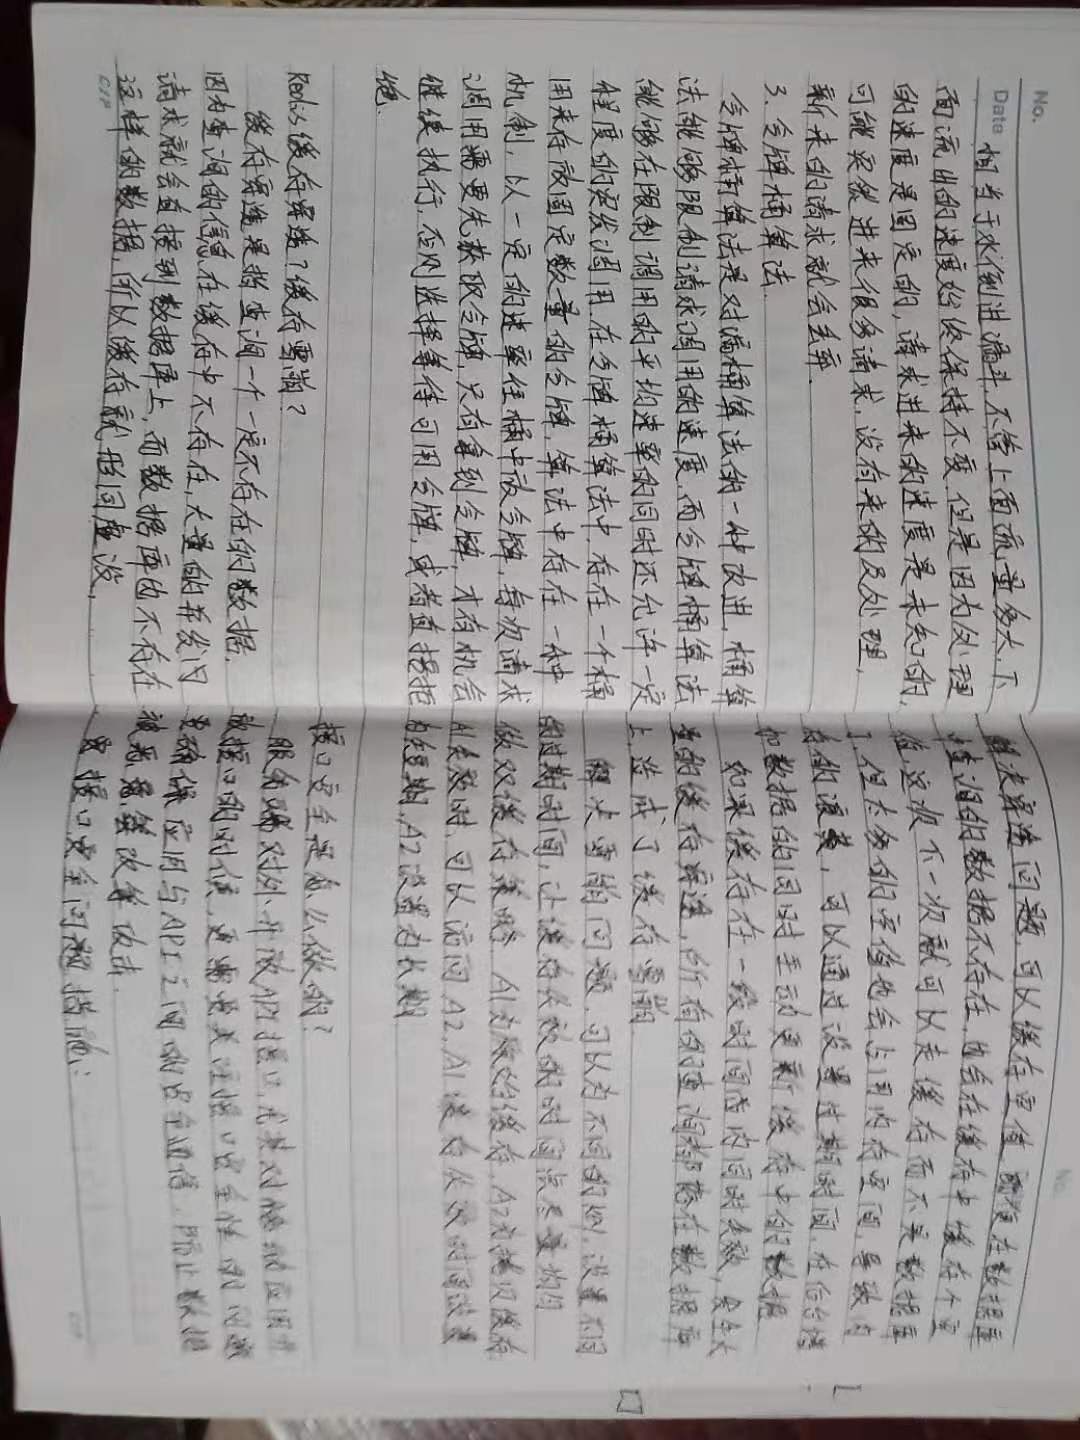 No.
Date 相当于水倒进漏斗,不管上面流量多大,下
面流出的速度始终保持不变,但是因为处理
的速度是固定的,请求进来的速度是未知的,
可能突然进来很多请求,没有来的及处理,
新来的请求就会丢弃.
3.令牌桶算法.
令牌桶算法是对漏桶算法的一种改进,桶算
法能够限制请求调用的速度,而令牌桶算法
能够在限制调用的平均速率的同时还允许一定
程度的突发调用.在令牌桶算法中,存在一个桶
用来存放固定数量的令牌,算法中存在一种
机制,以一定的速率往桶中放令牌,每次请求
调用需要先获取令牌,只有拿到令牌,才有机会
继续执行,否则选择等待可用令牌,或者直接拒
绝
Redis缓存穿透?缓存雪崩?
缓存穿透是指查询一个一定不存在的数据.
因为查询的信息在缓存中不存在,大量的并发访问
请求就会直接到数据库上,而数据库也不存在
这样的数据,所以缓存就形同虚设,
CYP
No.
解决穿透问题,可以缓存空值,在数据库
查询的数据不存在,也会在缓存中缓存个空
值,这次下一次就可以走缓存而不是数据库
了,但太多的空值也会占用内存空间,导致内
存的浪费,可以通过设置过期时间,在后台
和数据的同时主动更新缓存中的数据
如果缓存在一段时间内同时失效,发生大
量的缓存穿透,所有的查询都落在数据库
上,造成了缓存雪崩
解决雪崩问题,可以为不同的key,设置不同
的过期时间,让缓存失效的时间点尽量均匀
做双缓存策略,A1为原始缓存,A2为拷贝缓存
A1失效时,可以访问A2,A1缓存失效时间设置
为短期,A2设置为长期
接口安全是怎么做的?
服务端对外开放API接口,尤其对移动应用开
放接口的时候,更需要关注接口安全性的问题
要确保应用与API之间的安全通信,防止数据
被恶意篡改等攻击.
接口安全问题措施: